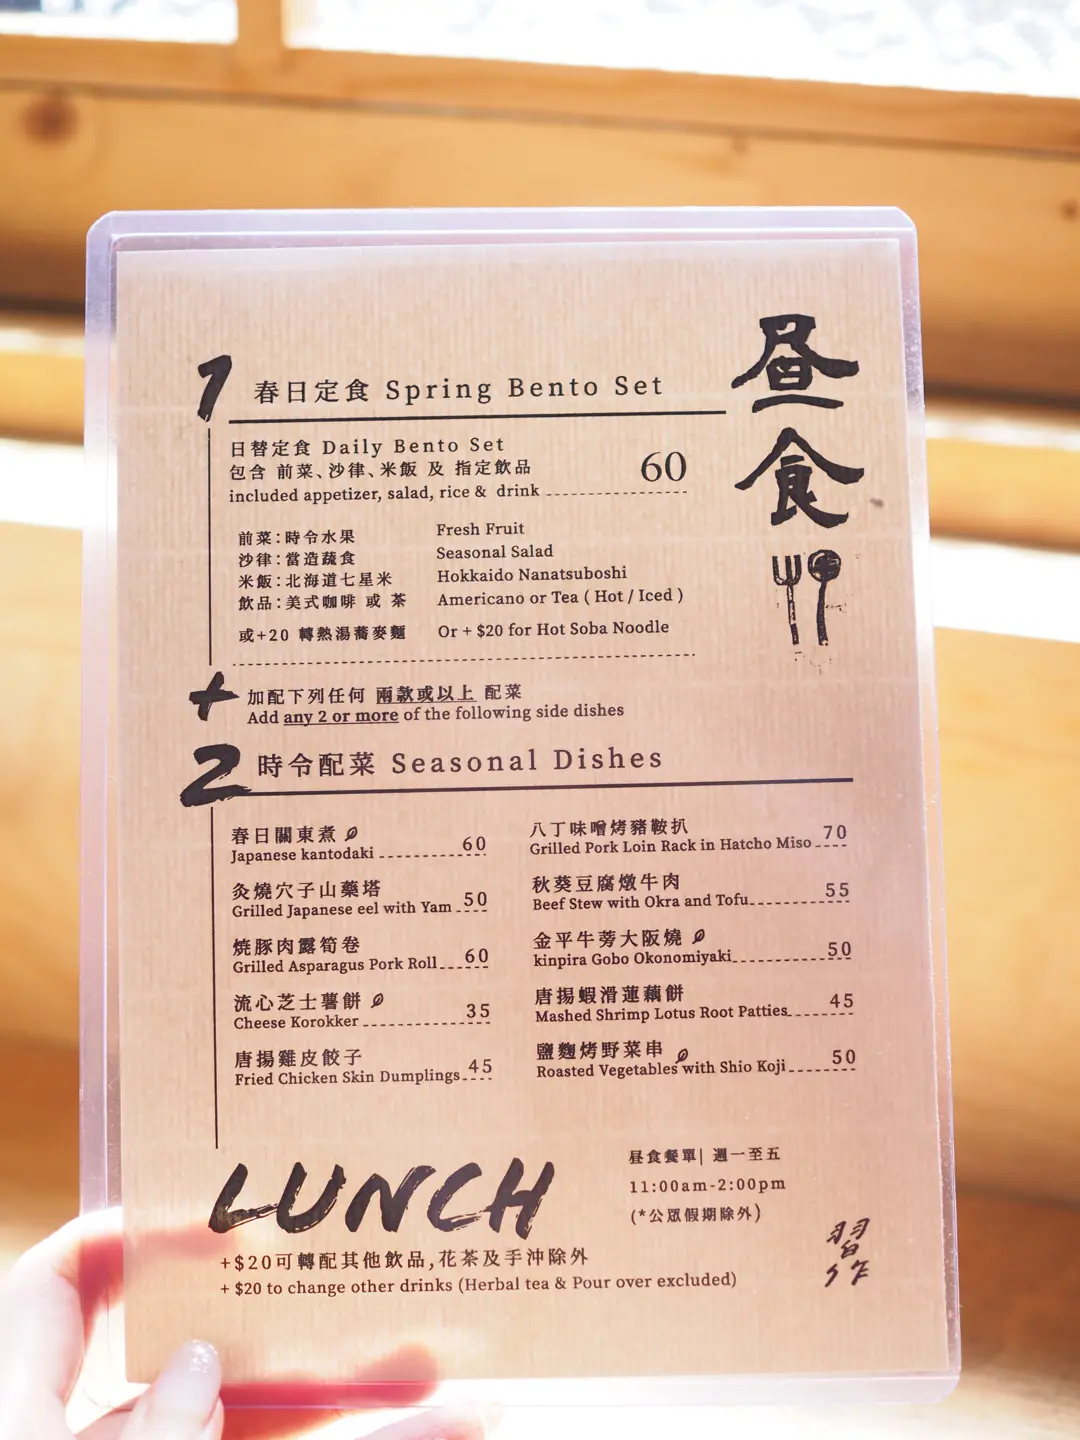 昼食
1 春日定食 Spring Bento Set
日替定食 Daily Bento Set
包含 前菜、沙律、米飯 及 指定飲品
included appetizer, salad, rice & drink 60
前菜：時令水果 Fresh Fruit
沙律：當造蔬食 Seasonal Salad
米飯：北海道七星米 Hokkaido Nanatsuboshi
飲品：美式咖啡 或 茶 Americano or Tea ( Hot / Iced )
或+20 轉熱湯蕎麥麵 Or + $20 for Hot Soba Noodle
+ 加配下列任何 兩款或以上 配菜
Add any 2 or more of the following side dishes
2 時令配菜 Seasonal Dishes
春日關東煮
Japanese kantodaki 60
灸燒穴子山藥塔
Grilled Japanese eel with Yam 50
燒豚肉露筍卷
Grilled Asparagus Pork Roll 60
流心芝士薯餅
Cheese Korokker 35
唐揚雞皮餃子
Fried Chicken Skin Dumplings 45
八丁味噌烤豬鞍扒
Grilled Pork Loin Rack in Hatcho Miso 70
秋葵豆腐燉牛肉
Beef Stew with Okra and Tofu 55
金平牛蒡大阪燒
kinpira Gobo Okonomiyaki 50
唐揚蝦滑蓮藕餅
Mashed Shrimp Lotus Root Patties 45
鹽麴烤野菜串
Roasted Vegetables with Shio Koji 50
LUNCH
昼食餐單| 週一至五
11:00am-2:00pm
(*公眾假期除外)
+$20可轉配其他飲品,花茶及手沖除外
+ $20 to change other drinks (Herbal tea & Pour over excluded)
習作